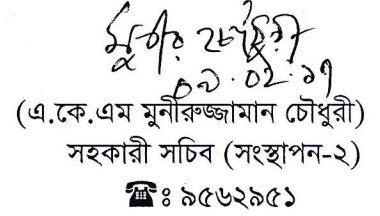 ০৯.০২.১৭
(এ.কে.এম মুনীরুজ্জামান চৌধুরী)
সহকারী সচিব (সংস্থাপন-২)
☎ঃ ৯৫৬২৯৫১